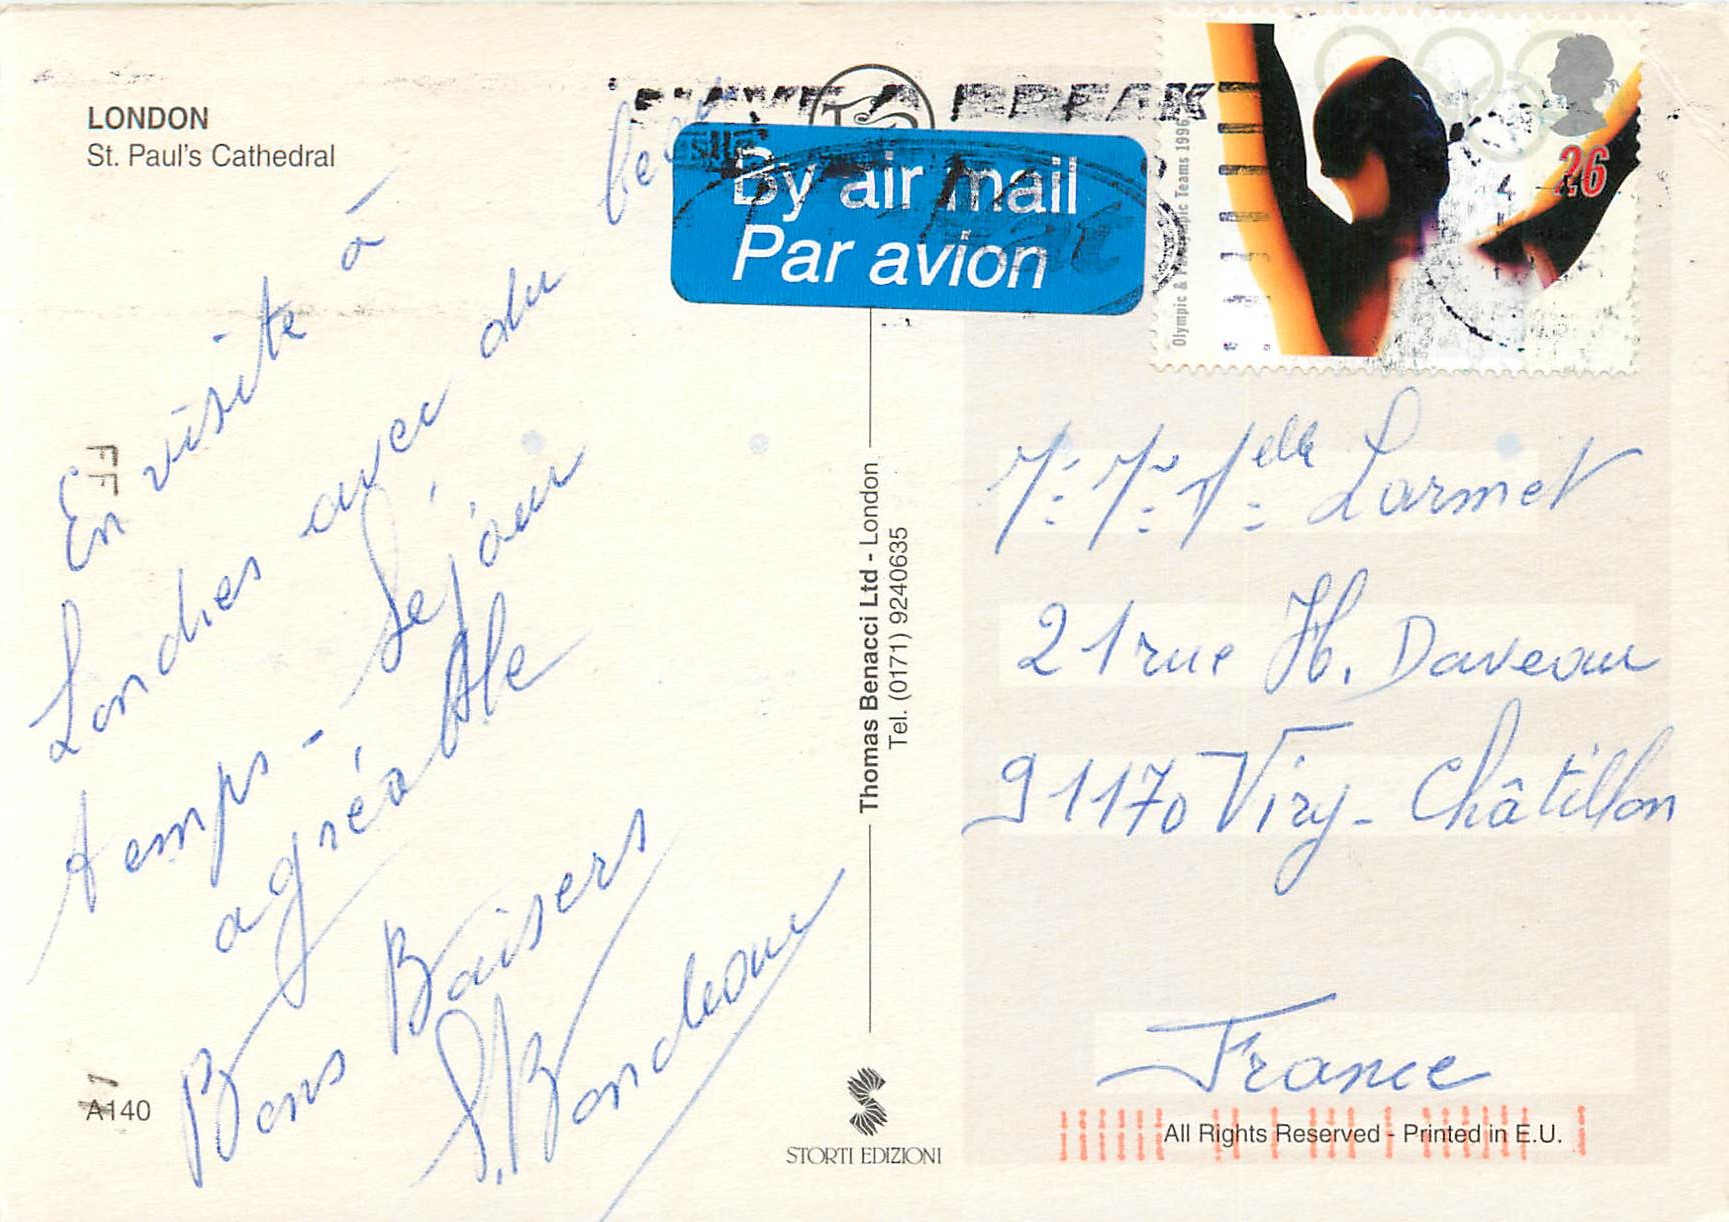 LONDON
St. Paul's Cathedral
En visite à
Londres avec du beau
temps - Séjour
agréable
Bons Baisers
By air mail
Par avion
Olympic & Paralympic Teams 1996
26
M. M. Melle Larmet
21 rue H. Daveau
91170 Viry-Châtillon
France
Thomas Benacci Ltd - London
Tel. (0171) 9240635
A140
STORTI EDIZIONI
All Rights Reserved - Printed in E.U.